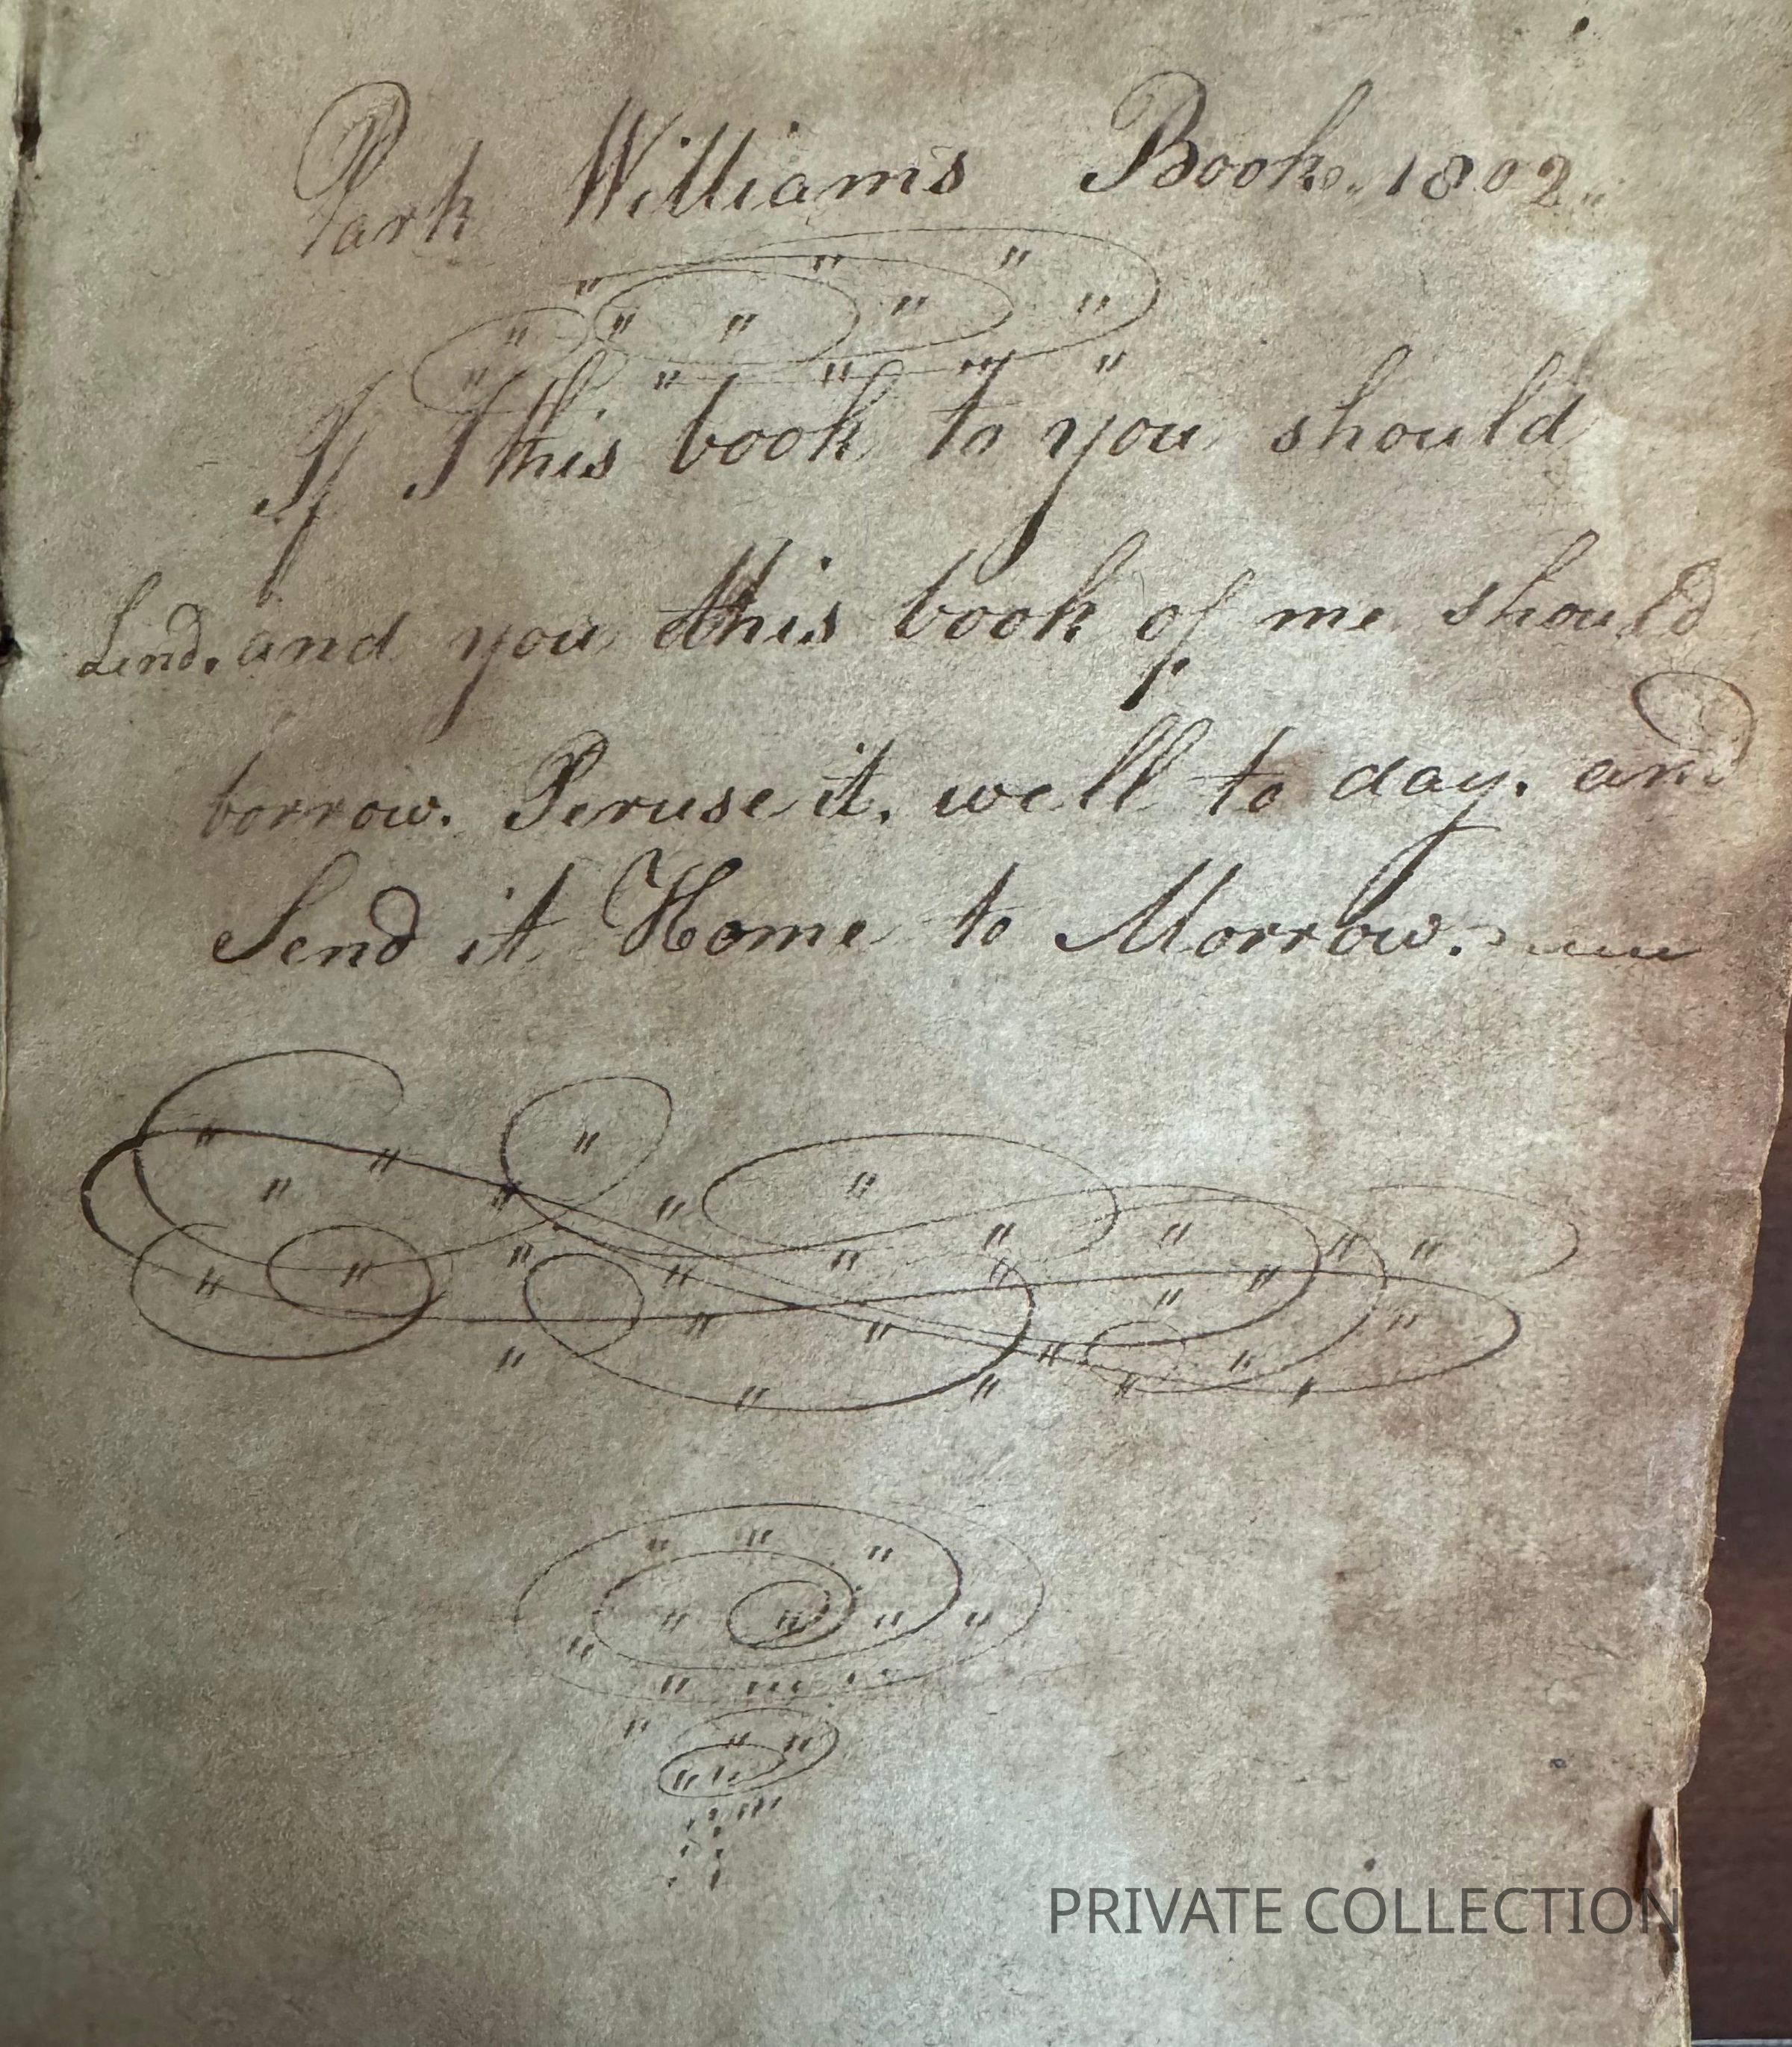 Park Williams Book. 1802.
If This book to you should
Lend. and you this book of me should
borrow. Peruse it. well to day. and
Send it Home to Morrow.
PRIVATE COLLECTION